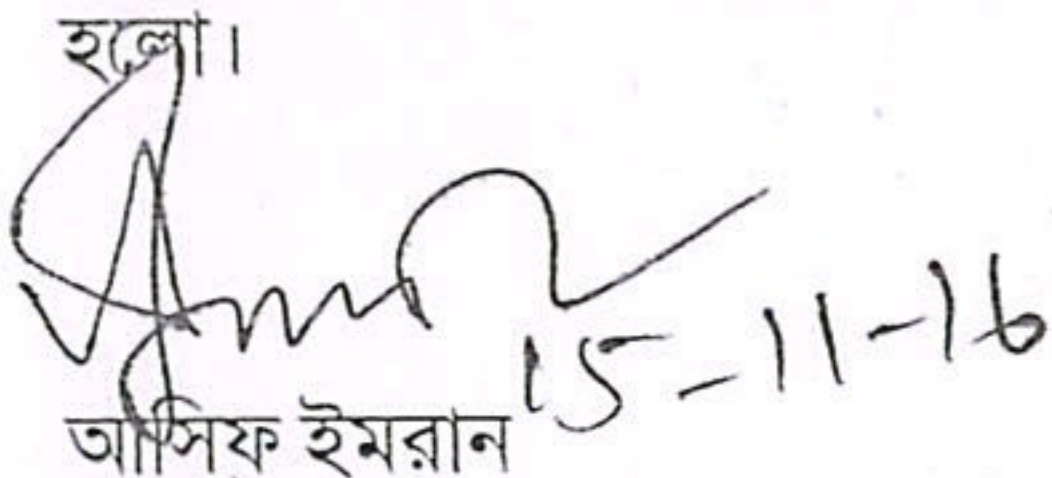 হলো।
15-11-16
আসিফ ইমরান